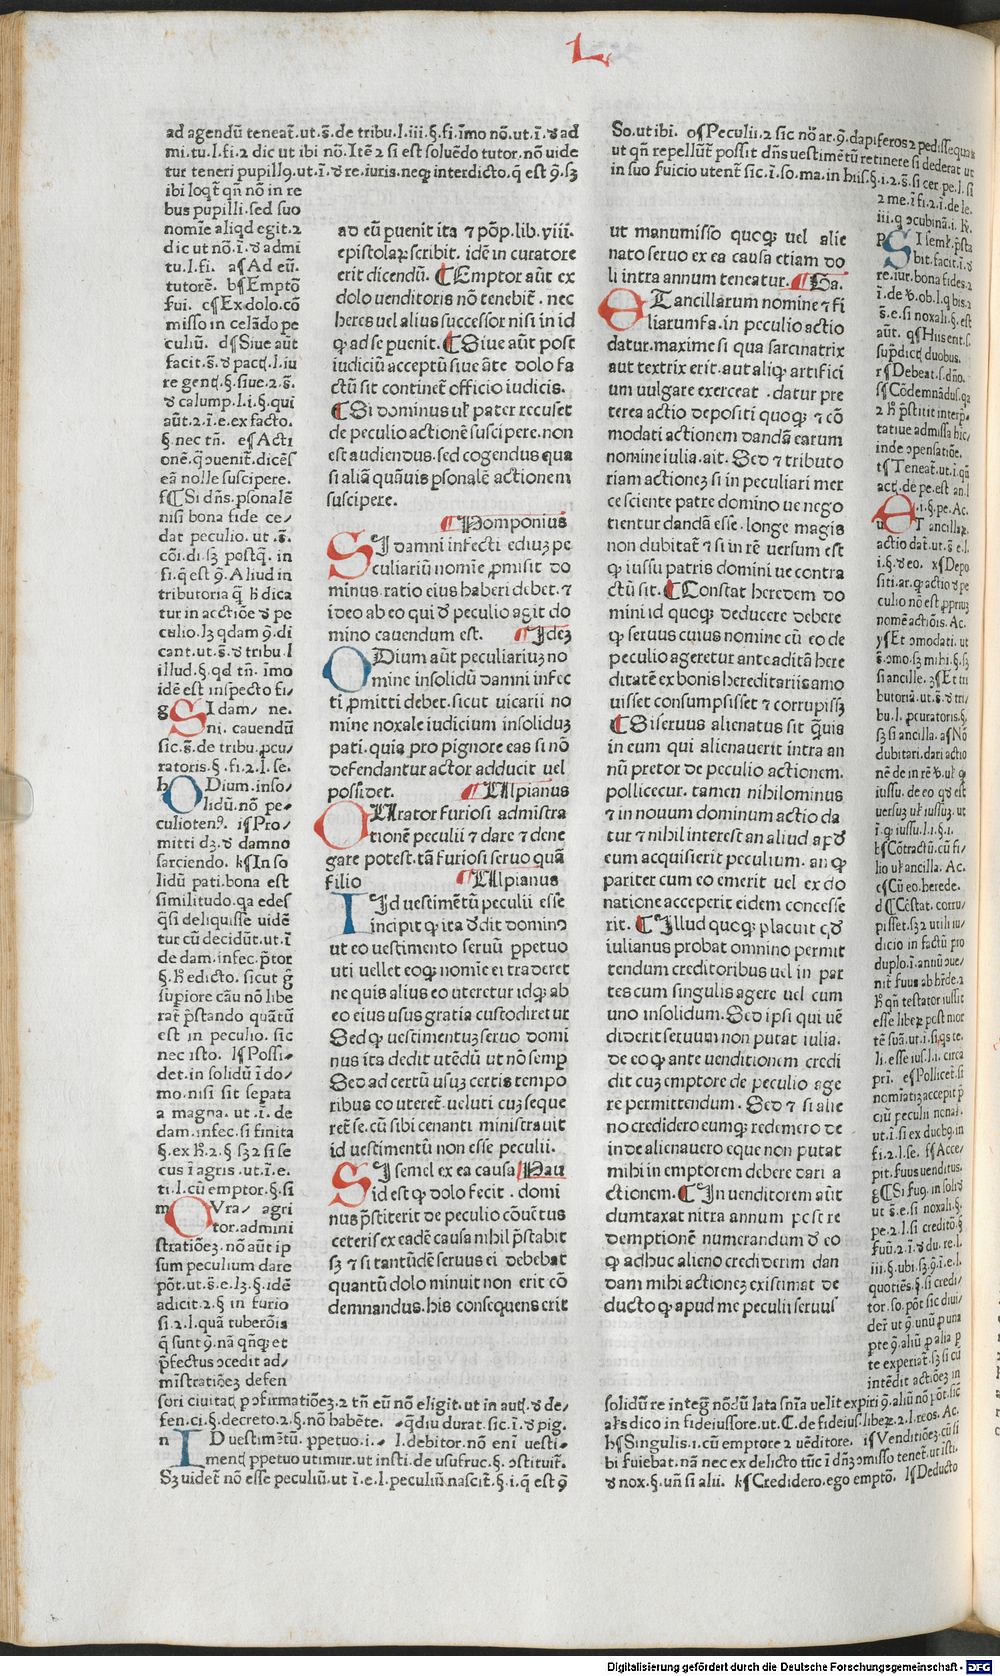 L
ad agendū teneat̄.ut.s̄.de tribu.l.iii.§.fi.īmo nō.ut.ī.ꝺ ad
mi.tu.l.fi.2 dic ut ibi nō.Itē 2 si est soluēdo tutor.nō uide
tur teneri pupillꝰ.ut.ī.ꝺ re.iuris.neqꝫ interdicto.q̄ est ꝯ.sꝫ
ibi loqt̄ qn̄ nō in re
bus pupilli.sed suo
nomīe aliqd egit.2
dic ut nō.ī.ꝺ admi
tu.l.fi. a¶Ad eū.
tutorē. b¶Emptō
fui. c¶Ex dolo.cō
misso in celādo pe
culiū. d¶Siue aūt
facit.s̄.ꝺ pact̄.l.iu
re gent̄.§.siue.2.s̄.
ꝺ calump.l.i.§.qui
aūt.2.ī.e.ex facto.
§.nec tn̄. e¶Acti
onē.q̄ ↄuenit̄.dicēs
eā nolle suscipere.
f¶Si dn̄s.ꝑsonalē
nisi bona fide ce/
dat peculio.ut .s̄.
cōi.di.sꝫ postq̄.in
fi.q̄ est ꝯ.Aliud in
tributoria q̄ ħ dica
tur in acctiōe ꝺ pe
culio.lꝫ qdam ꝯ.di
cant.ut.s̄.ꝺ tribu.l
illud.§.qd tn̄.īmo
idē est inspecto fi/
g SI dam/ ne.
ni. cauendū
sic.s̄.de tribu.ꝓcu/
ratoris.§.fi.2.l.se.
h ODium.inso/
lidū.nō pe/
culiotenꝰ. i¶Pro/
mitti dꝫ.ꝺ damno
sarciendo. k¶In so
lidū pati.bona est
similitudo.qa edes
q̄si deliquisse uidē
tur cū decidūt.ut.ī
de dam.infec.p̄tor
§.ħ edicto. sicut g̊
suꝑiore cāu nō libe
rat̄ p̄stando quātū
est in peculio. sic
nec isto. l¶Possi/
det.in solidū ī do/
mo.nisi sit seꝑata
a magna. ut.ī. de
dam.infec.si finita
§.ex ħ.2.§ sꝫ 2 si se
cus ī agris.ut.ī.e.
ti.l.cū emptor.§.si
m OVra/ agri
tor.admini
stratiōeꝫ.nō aūt ip
sum peculium dare
pōt.ut.s̄.e.lꝫ.§.idē
adicit.2.§ in furio
si.2.l.quā tuberōis
q̄ sunt ꝯ.nā qn̄qꝫ et
p̄fectus ↄcedit ad/
mīstratiōeꝫ defen
sori ciuitat̄ ꝓↄfirmatiōeꝫ.2 tn̄ eū nō eligit.ut in aut̄.ꝺ de/
fen.ci.§.decreto.2.§.nō habēte. ·q̄diu durat.sic.ī.ꝺ pig.
n ID uestimētū. ꝑpetuo.i·· l.debitor.nō enī uesti··
ment̄ ꝑpetuo utimur.ut insti.de usufruc.§.ↄstituit̄.
Sꝫ uidet̄ nō esse peculiū.ut ī.e.l.peculiū nascit̄.§.i.q̄ est ꝯ
ad eū ꝑuenit ita ⁊ pōp.lib.viii.
epistolaꝝ scribit. idē in curatore
erit dicendū. ¶Emptor aūt ex
dolo uenditoris nō tenebit̄. nec
heres uel alius successor nisi in id
ꝙ ad se ꝑuenit. ¶Siue aūt post
iudiciū acceptū siue āte dolo fa
ctū sit continet̄ officio iudicis.
¶Si dominus uł pater recuset
de peculio actionē suscipere.non
est audiendus.sed cogendus qua
si aliā quāuis ꝑsonalē actionem
suscipere.
¶Pomponius
SI damni infecti ediuꝫ pe
culiariū nomīe ꝓmisit do
minus.ratio eius haberi debet.⁊
ideo ab eo qui ꝺ peculio agit do
mino cauendum est. ¶Ideꝫ
ODium aūt peculiariuꝫ no
mine insolidū damni infec
ti ꝓmitti debet.sicut uicarii no
mine noxale iudicium insoliduꝫ
pati.quia pro pignore eas si nō
defendantur actor adducit uel
possidet. ¶Ulpianus
CUrator furiosi admīstra
tionē peculii ⁊ dare ⁊ dene
gare potest.tā furiosi seruo quā
filio ¶Ulpianus
Id uestimētū peculii esse
incipit ꝙ ita ꝺdit dominꝰ
ut eo uestimento seruū ꝑpetuo
uti uellet eoqꝫ nomīe ei traderet
ne quis alius eo uteretur idqꝫ ab
eo eius usus gratia custodiretur
Sed ꝙ uestimentuꝫ seruo domi
nus ita dedit utēdū ut nō semꝑ
Sed ad certū usuꝫ certis tempo
ribus eo uteret̄.ueluti cuꝫ seque
ret̄ se.cū sibi cenanti ministrauit
id uestimentū non esse peculii.
SI semel ex ea causa ¶Pau
id est ꝙ dolo fecit . domi
nus p̄stiterit de peculio cōuētus
ceteris ex eadē causa nihil p̄stabit
sꝫ ⁊ si tantūdē seruus ei debebat
quantū dolo minuit non erit cō
demnandus.his consequens erit
ut manumisso quoqꝫ uel alie
nato seruo ex ea causa etiam do
li intra annum teneatur. ¶Ga.
ET ancillarum nomine ⁊ fi
liarumfa.in peculio actio
datur.maxime si qua sarcinatrix
aut textrix erit.aut aliqꝫ artifici
um uulgare exerceat .datur pre
terea actio depositi quoqꝫ ⁊ cō
modati actionem dandā earum
nomine iulia.ait. Sed ⁊ tributo
riam actioneꝫ si in peculiari mer
ce sciente patre domino ue nego
tientur dandā esse.longe magis
non dubitat̄ ⁊ si in rē uersum est
ꝙ iussu patris domini ue contra
ctū sit. ¶Constat heredem do
mini id quoqꝫ deducere debere
ꝙ seruus cuius nomine cū eo de
peculio ageretur ante aditā here
ditatē ex bonis hereditariis amo
uisset consumpsisset ⁊ corrupissꝫ
¶Si seruus alienatus sit q̄uis
in eum qui alienauerit intra an
nū pretor de peculio actionem.
pollicecur.tamen nihilominus
⁊ in nouum dominum actio da
tur ⁊ nihil interest an aliud apꝺ
eum acquisierit peculium. an ꝙ
pariter cum eo emerit uel ex do
natione acceperit eidem concesse
rit. ¶Illud quoqꝫ placuit qꝺ
iulianus probat omnino permit
tendum creditoribus uel in par
tes cum singulis agere uel cum
uno insolidum.Sed ipsi qui uē
diderit seruum non putat iulia.
de eo ꝙ ante uenditionem credi
dit cuꝫ emptore de peculio age
re permittendum. Sed ⁊ si alie
no credidero eumqꝫ redemero de
inde alienauero eque non putat
mihi in emptorem debere dari a
ctionem. ¶In uenditorem aūt
dumtaxat nitra annum post re
demptionē numerandum ꝺ eo
ꝙ adhuc alieno crediderim dan
dam mihi actioneꝫ existimat de
ducto ꝙ apud me peculii seruus
So.ut ibi. o¶Peculii.2 sic nō ar.ꝯ.dapiferos 2 pedissequas
ut qn̄ repellūt̄ possit dn̄s uestimētū retinere si dederat ut
in suo ſuicio utent̄ sic.ī.so.ma.in hiis.§.i.2.s̄.si cer.pe.l.si
2 me.ī fi.2.ī.de le.
iii.q̄ ↄcubinā.i. ħ.
p SI semł.p̄sta
bit.facit.ī.ꝺ
re.iur.bona fides.2
ī.de ꝟ.ob.l.q̄ bis.2
s̄.e.si noxali.§.est
aūt. q¶Hiis ent̄.s.
sup̄dict̄ duobus.
r¶Debeat.s.dn̄o.
s¶Cōdemnādus.qa
2 ħ p̄stitit interp̄/
tatiue admissa hic/
inde ↄpensatiōe.
t¶Teneat̄.ut.ī.qn̄
act̄.de pe.est an.l
.i.§.pe.Ac.
u ET ancillaꝝ.
actio dat̄.ut.s̄ e.l.
i.§.ꝺ eo. x¶Depo
siti.ar.q̄ actio ꝺ pe
culio nō est ꝓpriuꝫ
nomē actiōis. Ac.
y¶Et ↄmodati. ut
s̄.ↄmo.sꝫ mihi.§.sꝫ
si ancille. ꝫ¶Et tri
butoriā.ut.s̄.ꝺ tri/
bu.l.ꝓcuratoris.§.
sꝫ si ancilla. a¶Nō
dubitari.dari actio
nē de in rē ꝟ.uł ꝙ
iussu. de eo qꝺ est
uersuꝫ uł iussuꝫ. ut
ī.q̄ iussu.l.i.§.i.
b¶Cōtractū.cū fi/
lio uł ancilla. Ac.
c¶Cū eo.herede.
d¶Cēstat. corru/
pisset.sꝫ 2 utili iu/
dicio in factū pro
duplo.ī.antiū oue/
nit̄ fuus ab hr̄de.2
ħ qn̄ testator iussit
esse libeꝝ post mor
tē suā.ut.i.si qs te.
li.esse ius.l.i. circa
pri. e¶Pollicet̄.si
nomīatiꝫ accepit p̄
ciū peculii nōnal.
ut.ī.si ex ducbꝯ.in
fi.2.l.se. f¶Acce/
pit.fuus uenditus.
g¶Si fuꝯ.in solꝺ
ut s̄.e.si noxali.§.
pe.2.l.si creditō.§
fuū.2.ī.ꝺ du.re.l.
iii.§.ubi.sꝫ ꝯ.ī.e.l.
quotiēs.§.si credi/
tor.so.pōt sic diui/
der̄ ut ꝯ.unū ꝑ una
pte ꝯ.aliū ꝑ alia p
te experiat̄.lꝫ si cū
intēdit actiōeꝫ in
solidū re inteḡ nōdū lata snīa uelit expiri ꝯ.aliū nō pōt.sic
ał̄s dico in fideiussore.ut.C.de fideius.libeꝝ.2.l.reos.Ac.
h¶Singulis.i.cū emptore 2 uēditore. i¶Venditiōeꝫ.cū si
bi fuiebat.nā nec ex delicto tūc ī dn̄ꝫ ↄmisso tenet̄.ut isti.
ꝺ nox.§.un̄ si alii. k¶Credidero.ego emptō. l¶Deducto
Digitalisierung gefördert durch die Deutsche Forschungsgemeinschaft · DFG